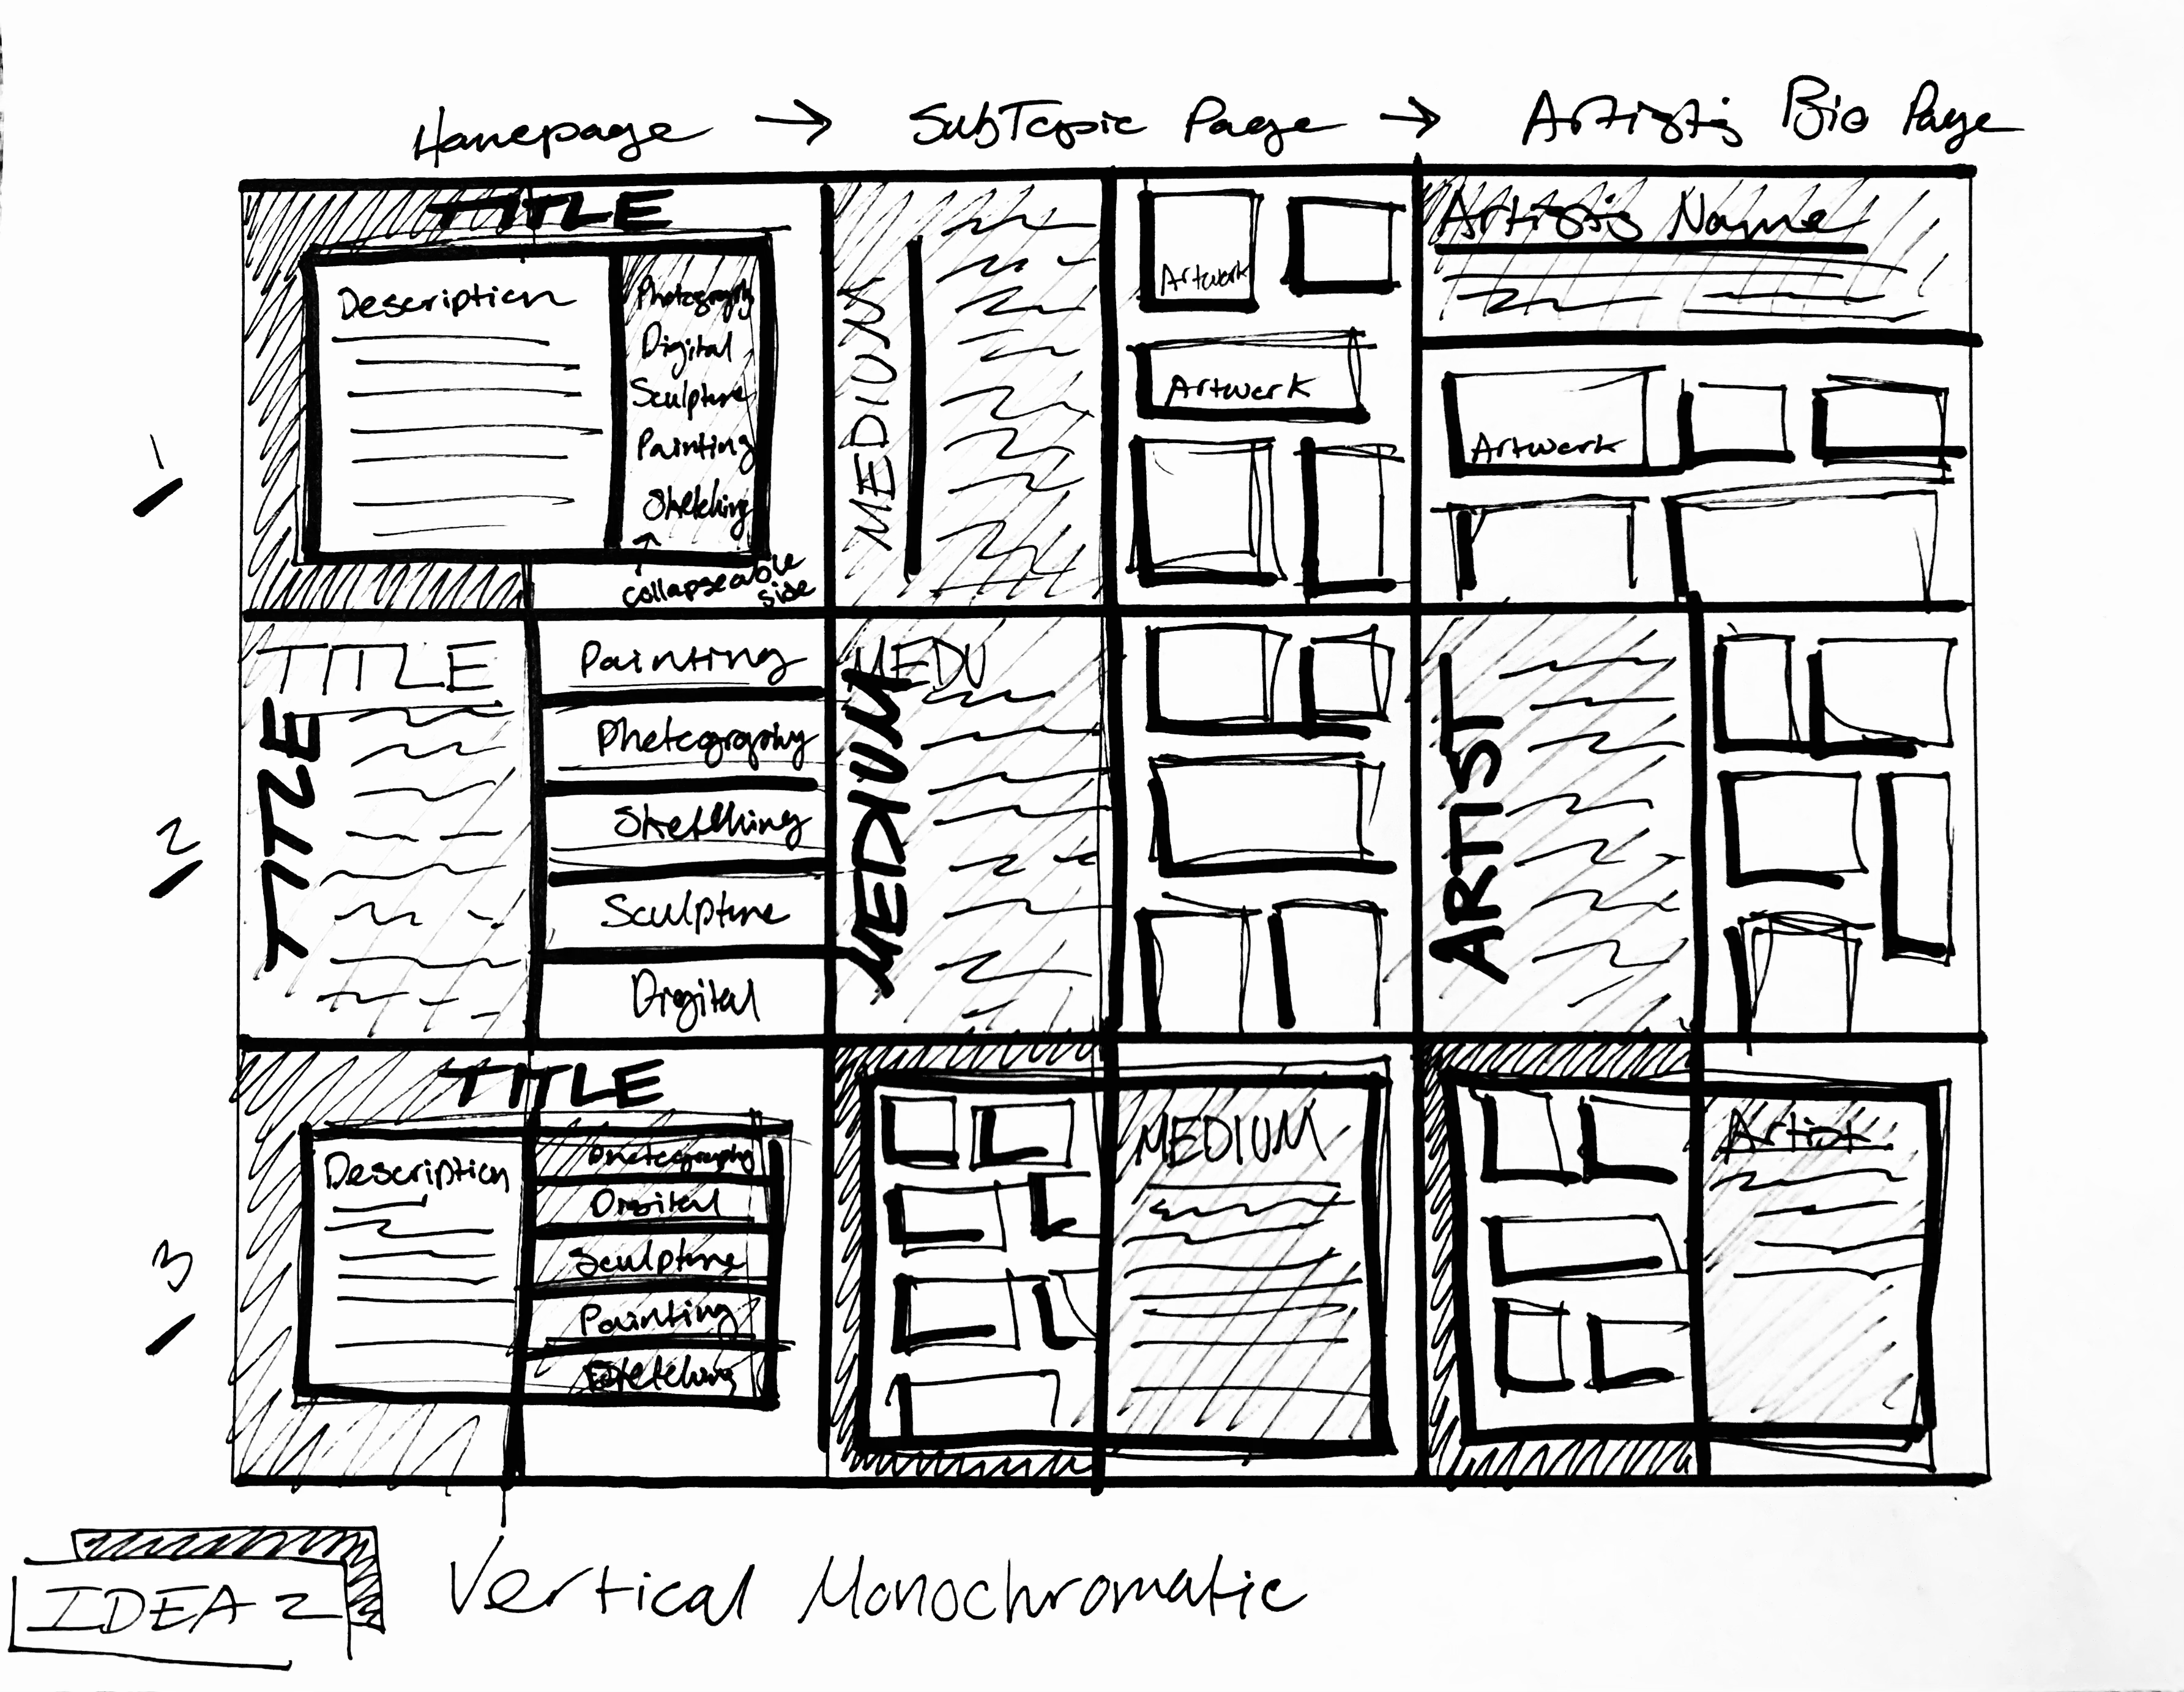 Homepage → SubTopic Page → Artist's Bio Page
1
TITLE
Description
Photography
Digital
Sculpture
Painting
Sketching
↑
collapseable
side
MEDIUM
Artwork
Artwork
Artist's Name
Artwork
2
TITLE
TITLE
Painting
Photography
Sketching
Sculpture
Digital
MEDU
MEDIUM
ARTIST
3
TITLE
Description
Photography
Digital
Sculpture
Painting
Sketching
MEDIUM
Artist
IDEA 2
Vertical Monochromatic